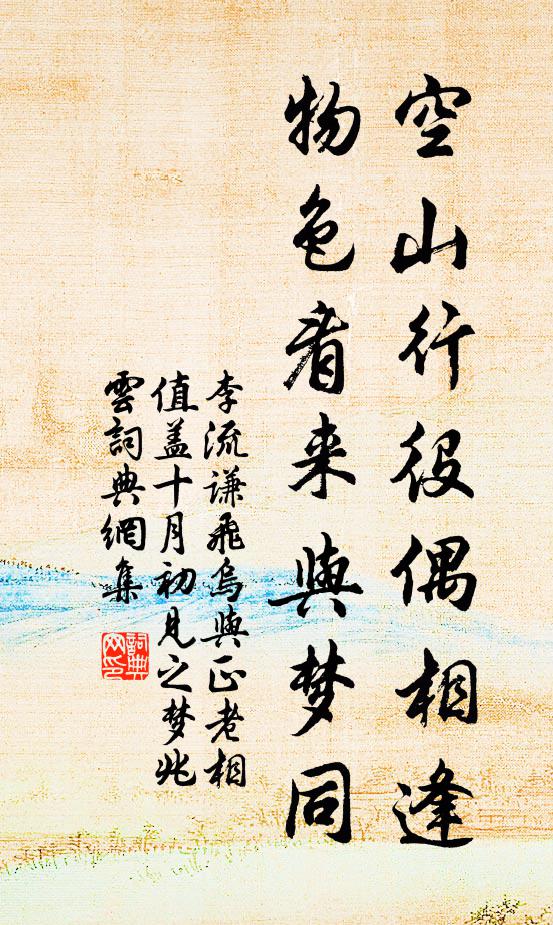 空山行役偶相逢
物色看来與梦同
李流謙飛烏與正老相
值盖十月初見之梦兆
雲詞典網集
詞典
网印